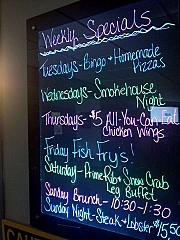 Weekly Specials
Tuesdays-Bingo + Homemade
Pizzas
Wednesdays- Smokehouse
Night
Thursdays- $5 All-You-Can-Eat
Chicken Wings
Friday Fish Fry's!
Saturday-Prime Rib + Snow Crab
Leg Buffet
Sunday Brunch- 10:30-1:30
Sunday Night-Steak + Lobster $15.50